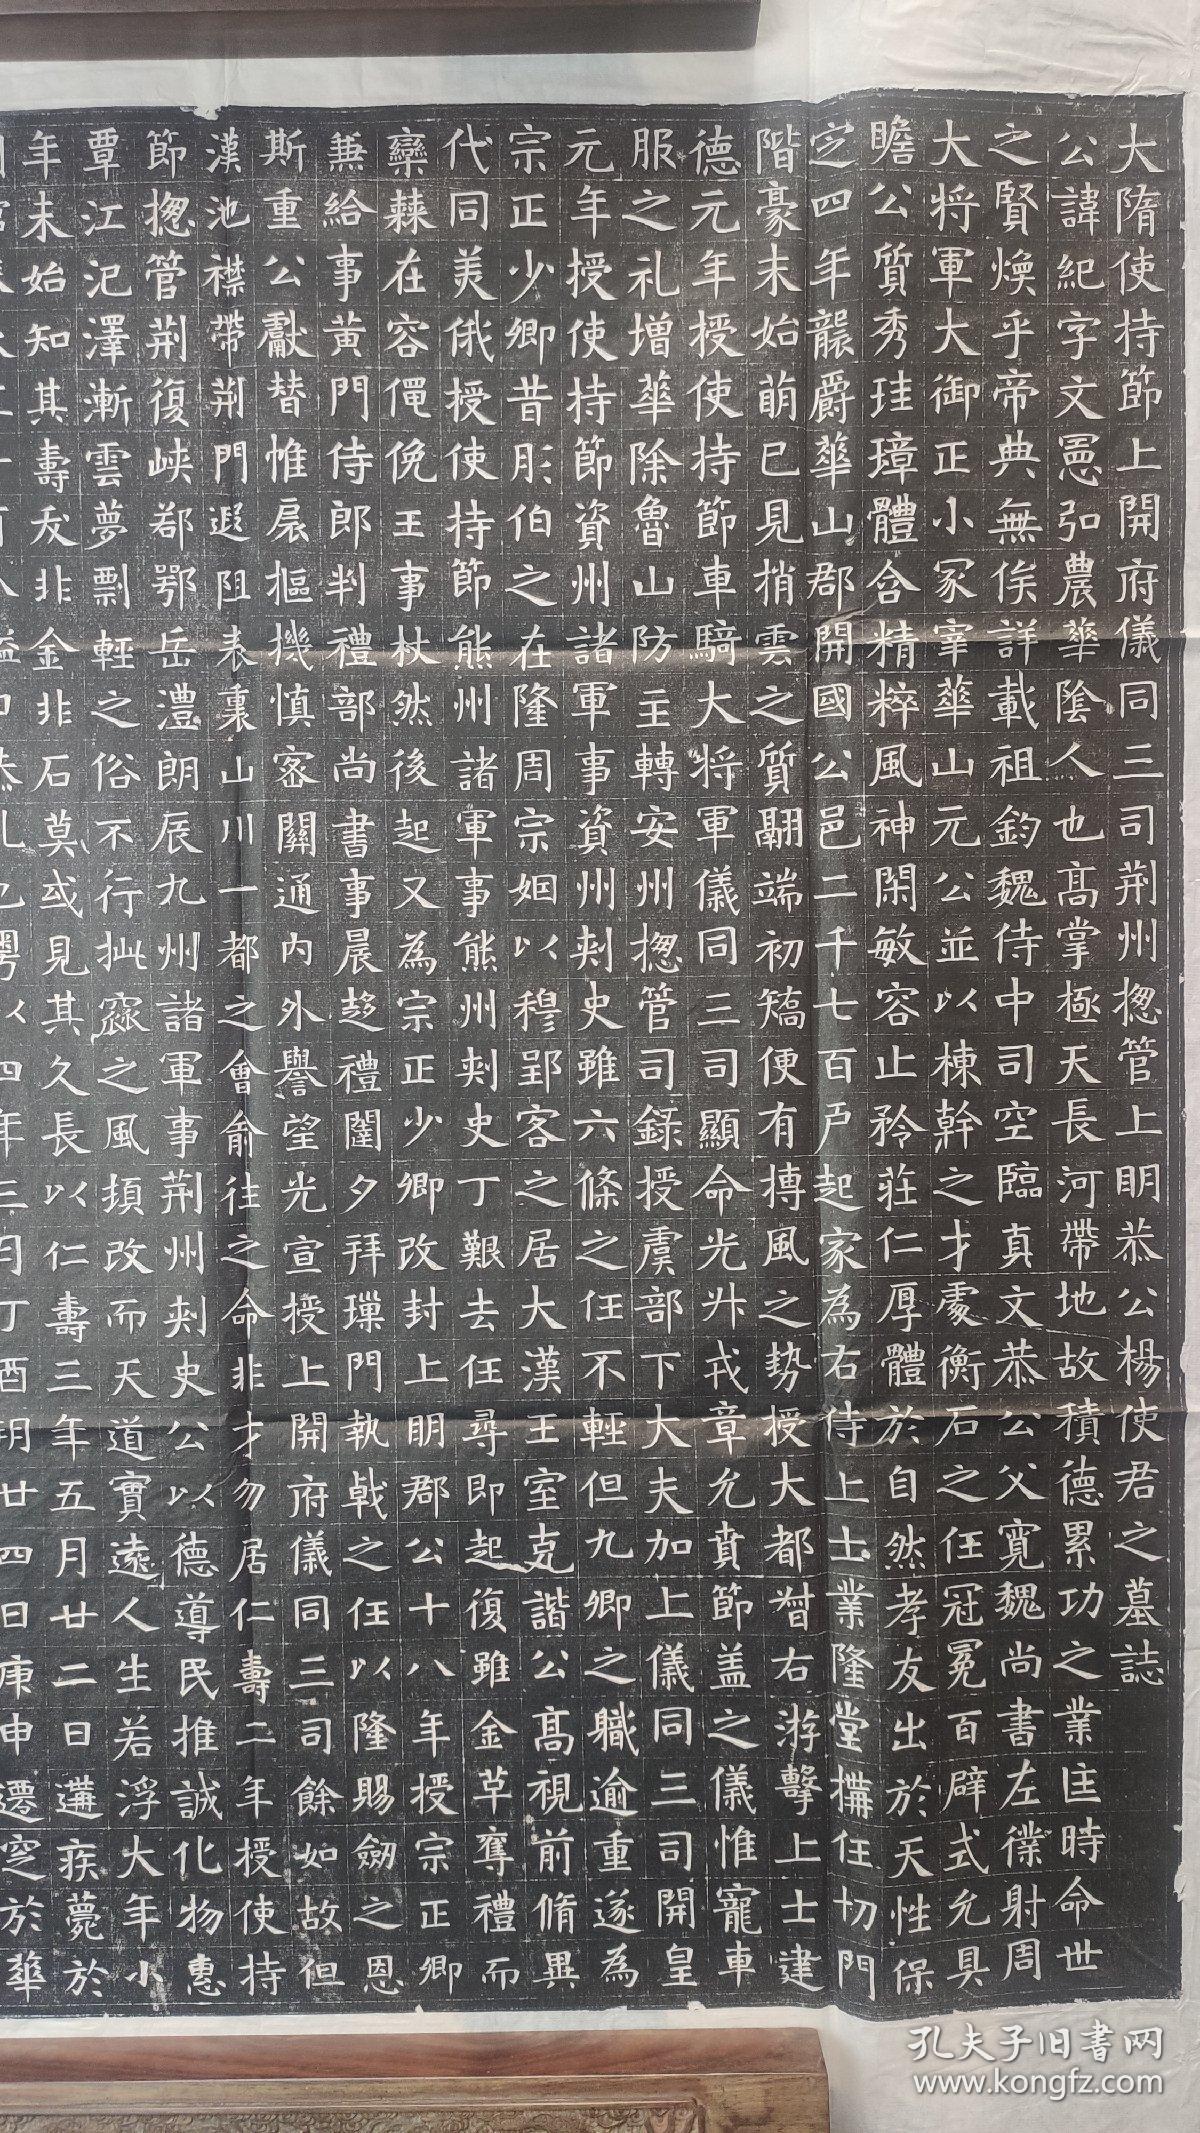 大隋使持節上開府儀同三司荊州揔管上明恭公楊使君之墓誌
公諱紀字文憲弘農華陰人也高掌極天長河帶地故積德累功之業匡時命世
之賢煥乎帝典無俟詳載祖鈞魏侍中司空臨真文恭公父寬魏尚書左僕射周
大將軍大御正小冢宰華山元公並以棟幹之才處衡石之任冠冕百辟式允具
瞻公質秀珪璋體含精粹風神閑敏容止矜莊仁厚體於自然孝友出於天性保
定四年襲爵華山郡開國公邑二千七百戶起家為右侍上士業隆堂搆任切門
階豪末始萌已見捎雲之質翮端初矯便有摶風之勢授大都督右游擊上士建
德元年授使持節車騎大將軍儀同三司顯命光昇戎章允賁節盖之儀惟寵車
服之礼增華除魯山防主轉安州揔管司錄授虞部下大夫加上儀同三司開皇
元年授使持節資州諸軍事資州刾史雖六條之任不輕但九卿之職逾重遂為
宗正少卿昔彤伯之在隆周宗姻以穆郢客之居大漢王室克諧公高視前脩異
代同美俄授使持節熊州諸軍事熊州刾史丁艱去任尋即起復雖金草奪禮而
欒棘在容僶俛王事杖然後起又為宗正少卿改封上明郡公十八年授宗正卿
兼給事黃門侍郎判禮部尚書事晨趍禮闈夕拜璅門執戟之任以隆賜劒之恩
斯重公獻替惟扆樞機慎密關通內外譽望光宣授上開府儀同三司餘如故但
漢池襟帶荊門遐阻表裏山川一都之會俞往之命非才勿居仁壽二年授使持
節揔管荊復峽鄀鄂岳澧朗辰九州諸軍事荊州刾史公以德導民推誠化物惠
覃江汜澤漸雲夢剽輕之俗不行㧗窳之風頓改而天道實遠人生若浮大年小
年未始知其壽夭非金非石莫或見其久長以仁壽三年五月廿二日遘疾薨於
四年三月丁酉朔廿四日庚申遷窆於華